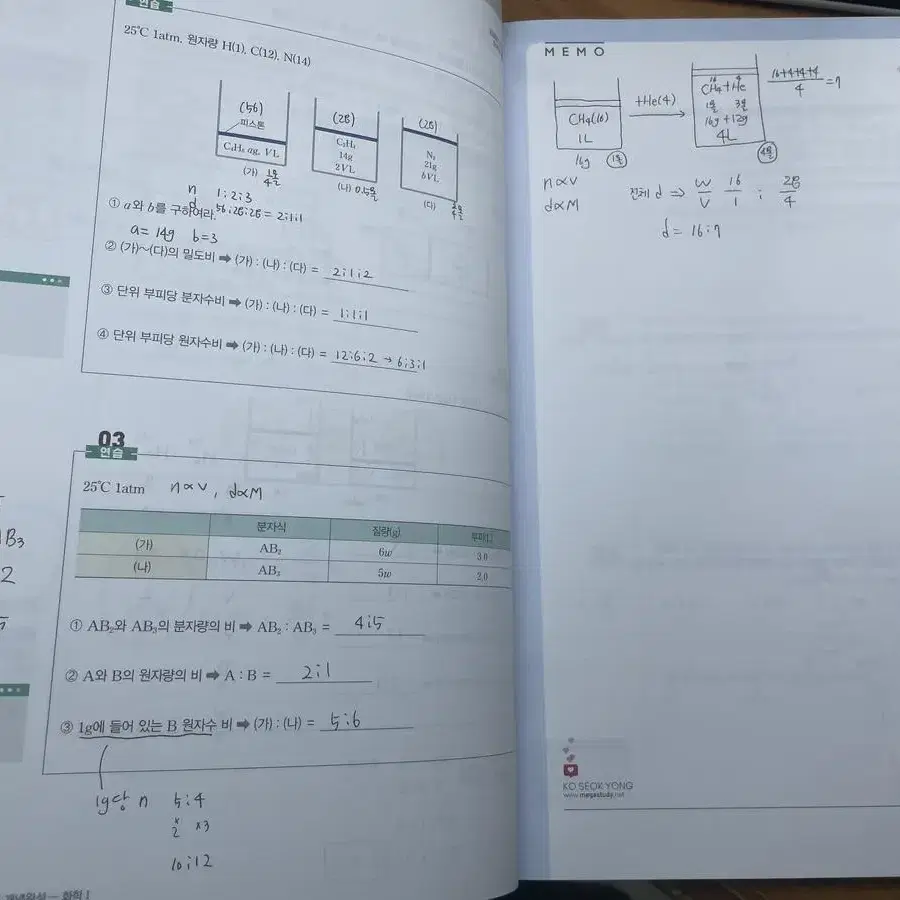 연습
25℃ 1atm, 원자량 H(1), C(12), N(14)
(56)
피스톤
C₄H₈ ag, VL
(가) 1몰/4
(28)
C₂H₄
14g
2VL
(나) 0.5몰
(28)
N₂
21g
bVL
(다) 3몰/4
n 1:2:3
d 56:28:28 = 2:1:1
① a와 b를 구하여라.
a = 14g b = 3
② (가)~(다)의 밀도비 ➡ (가) : (나) : (다) = 2:1:2
③ 단위 부피당 분자수비 ➡ (가) : (나) : (다) = 1:1:1
④ 단위 부피당 원자수비 ➡ (가) : (나) : (다) = 12:6:2 → 6:3:1
03
연습
25℃ 1atm n∝V, d∝M
분자식 질량(g)
(가) AB₂ 6w 3.0
(나) AB₃ 5w 2.0
① AB₂와 AB₃의 분자량의 비 ➡ AB₂ : AB₃ = 4:5
② A와 B의 원자량의 비 ➡ A : B = 2:1
③ 1g에 들어 있는 B 원자수 비 ➡ (가) : (나) = 5:6
1g당 n 5:4
×2 ×3
10:12
B₃
2
MEMO
CH₄(16)
1L
16g 1몰
+He(4)
16 4
CH₄+He
1몰 3몰
16g+12g
4L
4몰
16+4+4+4/4 = 7
n∝V
d∝M
전체 d ⇒ W/V 16/1 : 28/4
d = 16:7
KO SEOK YONG
www.megastudy.net